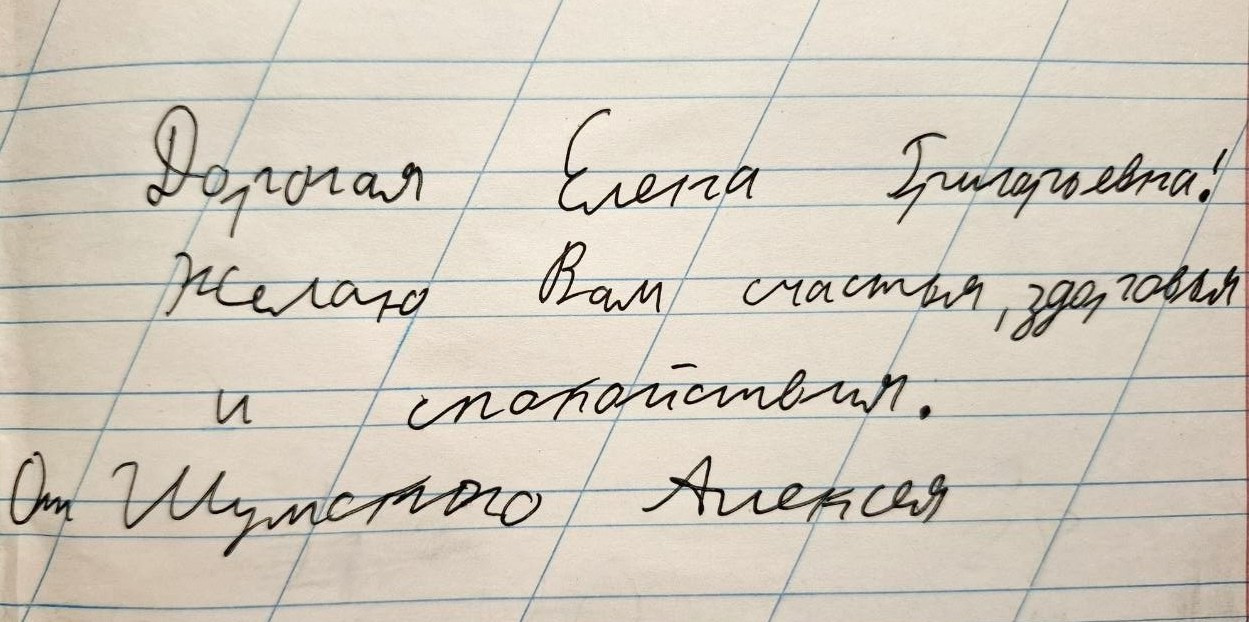 Дорогая Елена Григорьевна!
Желаю Вам счастья, здоровья
и спокойствия.
От Шумского Алексея